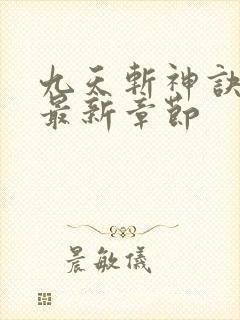 九天斬神訣
最新章節
晨敏儀